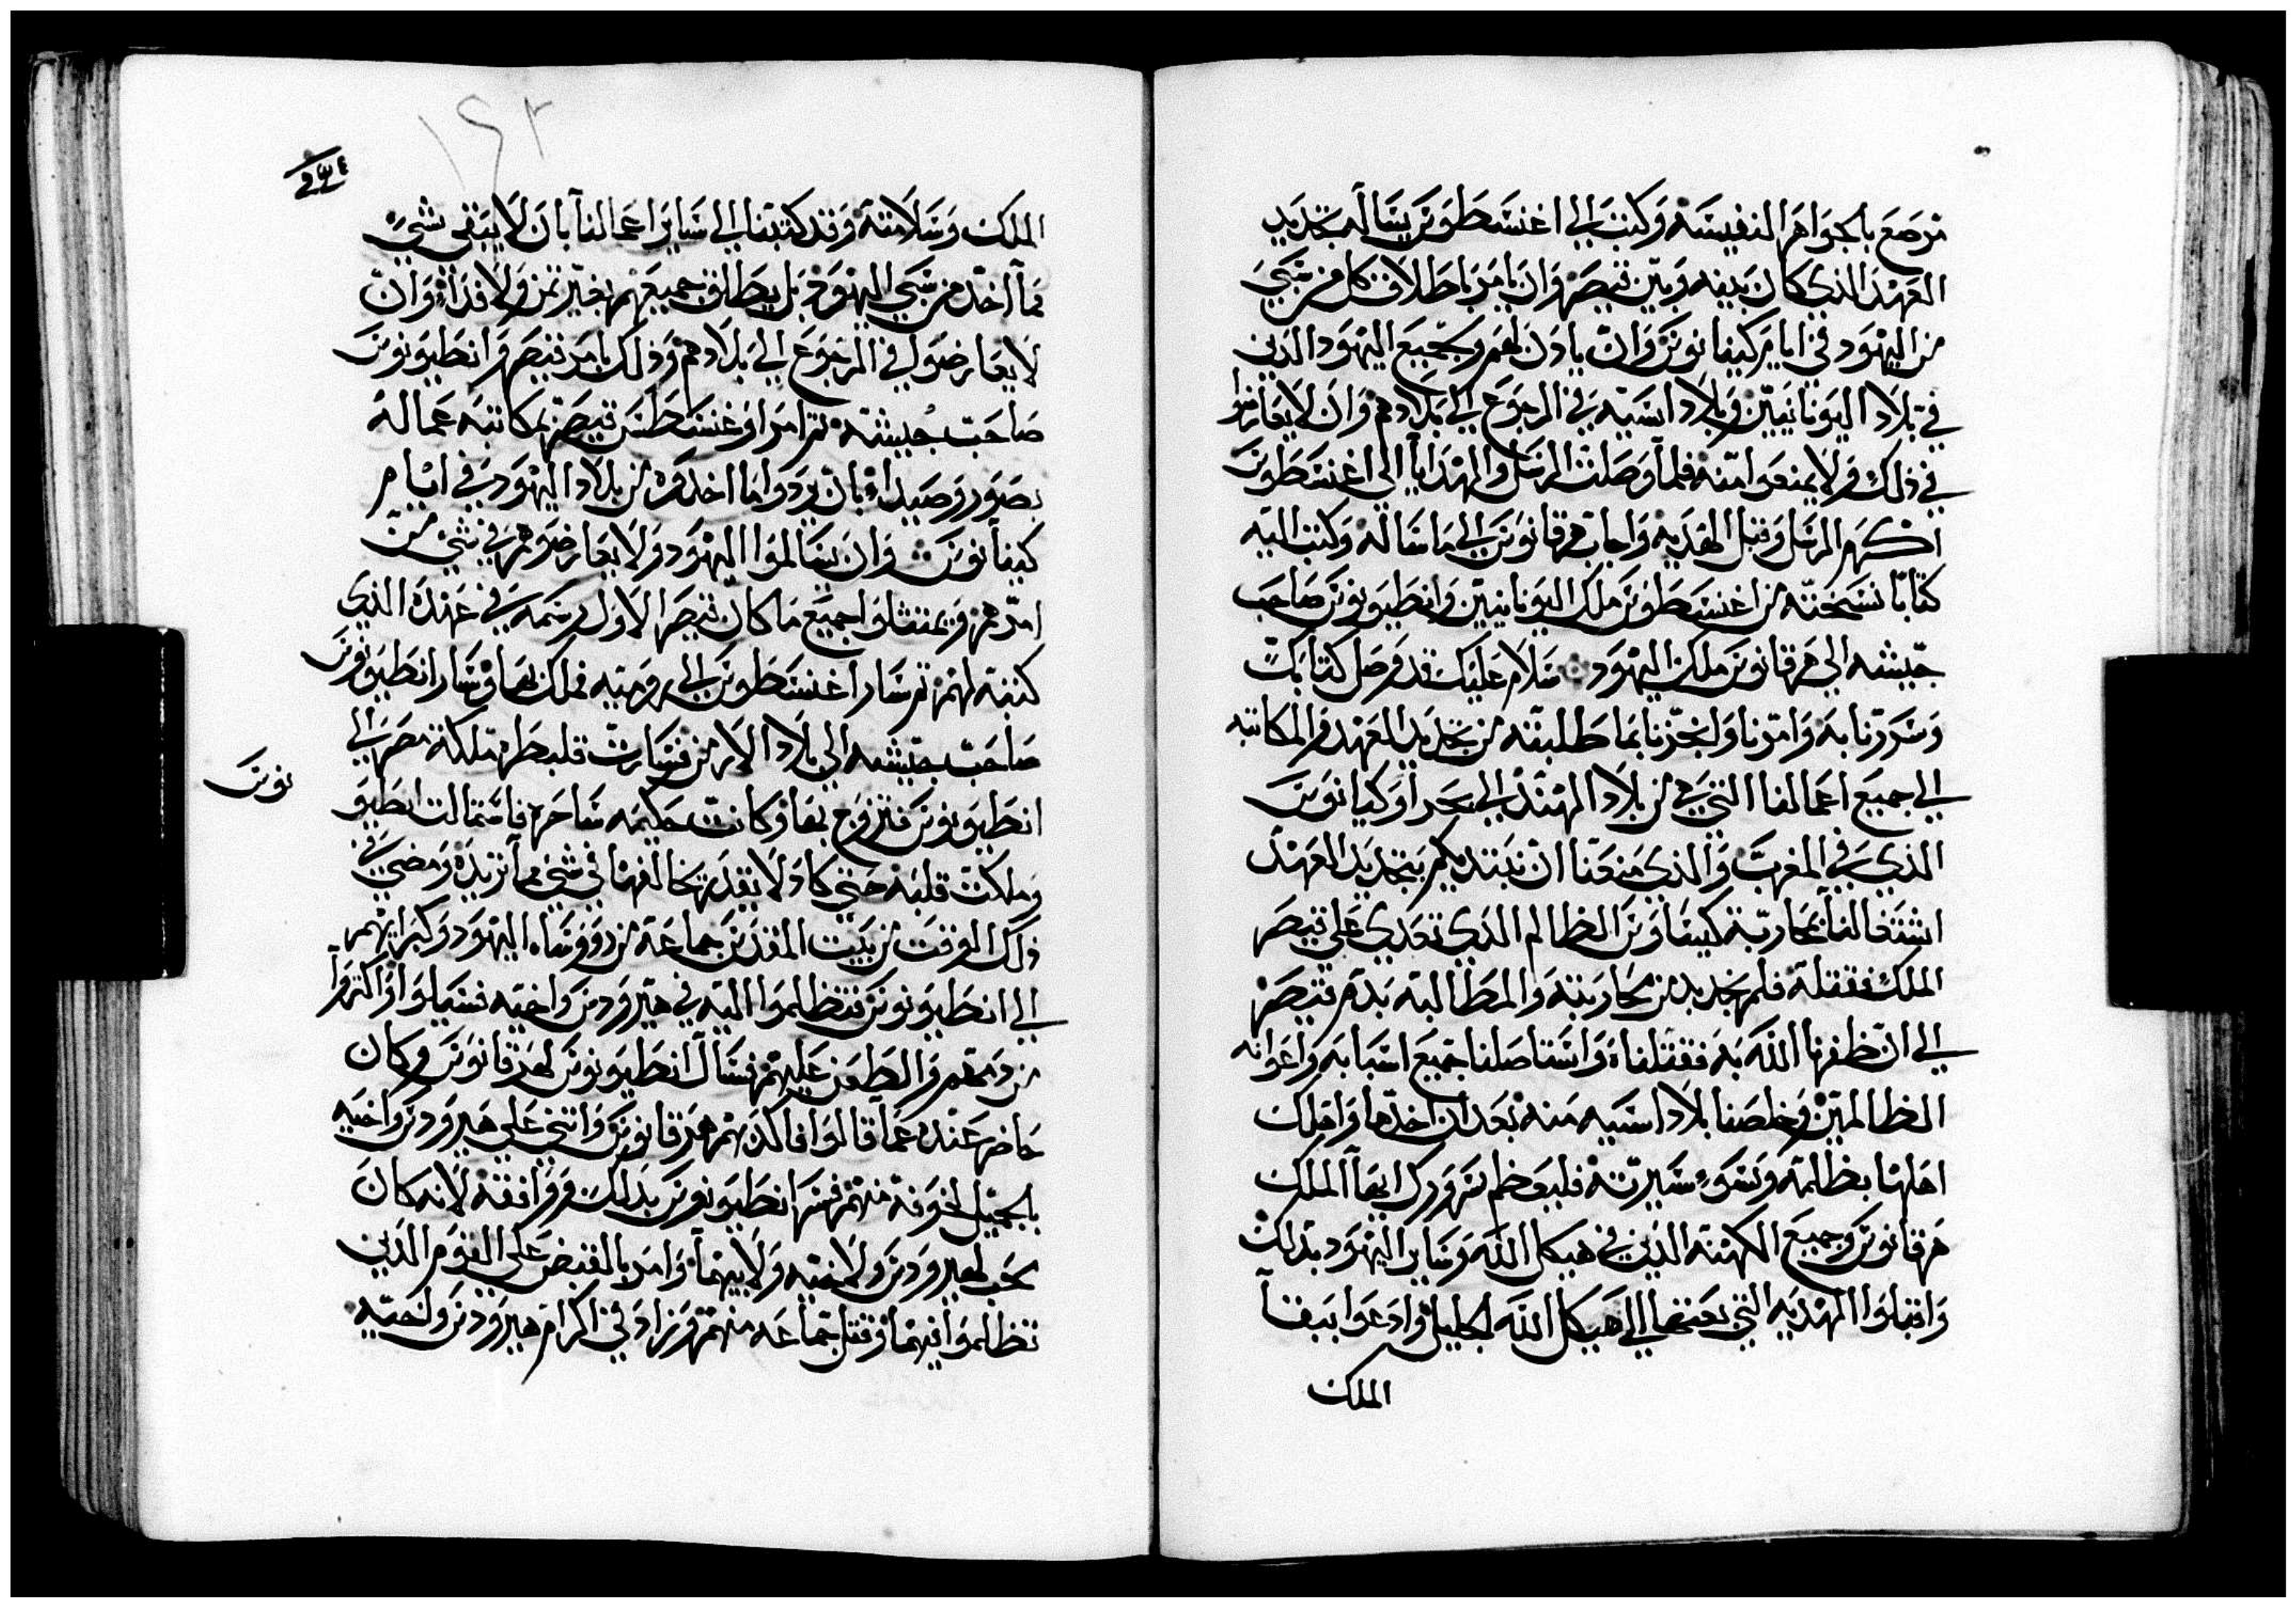 مرصع بالجواهر النفيسه وكتب الي اغسطوس يساله بتجديد
العهد الذي كان بينه وبين قيصر وان يامر باطلاق كل من سبي
من اليهود في ايام كيفانوس وان يادن لهم ولجميع اليهود الدين
في بلاد اليونانيين وبلاد اسيه في الرجوع الي بلادهم وان لا يعارضوا
في ذلك ولا يمنعوا منه فلما وصلت الرسل والهدايا الي اغسطوس
اكرم الرسل وقبل الهديه واجاب هرقانوس الي ما ساله وكتب اليه
كتابا نسخته من اغسطوس ملك اليونانيين وانطيونوس صاحب
جيشه الي هرقانوس ملك اليهود سلام عليك قد وصل كتابك
وسررنا به وامرنا ولنجزنا بما طلبته من تجديد العهد والمكاتبه
الي جميع اعمالنا التي من بلاد الهند الي بحر اوكيانوس
الذي في المغرب والذي منعنا ان نبتديكم بتجديد العهد
اشتغالنا بمحاربة كيفاوس الظالم الذي تعدي علي قيصر
الملك فقتله فلم نجد بد من محاربته والمطالبه بدم قيصر
الي ان ظفرنا الله به فقتلناه واستاصلنا جميع اسبابه واعوانه
الظالمين وخلصنا بلاد اسيه منه بعد ان اخدها واهلك
اهلها بظلمه وسوء سيرته فليعظم سرورك ايها الملك
هرقانوس وجميع الكهنه الذين في هيكل الله وساير اليهود بذلك
واقبلوا الهديه التي بعتها الي هيكل الله الجليل وادعوا ببقا
الملك
١٤٣
الملك وسلامته وقد كتبنا الي ساير اعمالنا بان لا يبقي شي
مما اخد من سبي اليهود بل يطلق جميعهم بغير ثمن ولا فداء وان
لا يعارضوا في الرجوع الي بلادهم وذلك بامر قيصر وانطيونوس
صاحب جيشه ثم امر اوغسطس قيصر بمكاتبه عماله
بصور وصيداء بان يردوا ما اخدوه من بلاد اليهود في ايام
كيفانوس وان يسالموا اليهود ولا يعارضوهم في شي من
امرهم ويمتثلوا جميع ما كان قيصر الاول رسمه في عهده الذي
كتبه لهم ثم سار اغسطوس الي روميه فملك بها وسار انطيونوس
صاحب جيشه الي بلاد الارمن فسارت قلبطره ملكة مصر الي
انطيونوس فتزوج بها وكانت حكيمه ساحره فاستمالت انطيو
نوس
وملكت قلبه حتي كاد لا يقدر يخالفها في شي مما تريده ومضي في
ذلك الوقت من بيت المقدس جماعة من رووساء اليهود وكبرايهم
الي انطيونوس فتظلموا اليه في هيرودس واخيه فسيلوا واكتروا
من دمهم والطعن عليهم فسال انطيونوس لهرقانوس وكان
حاضر عنده عما قالوا فاكدبهم هرقانوس واتني علي هيرودس واخيه
بالجميل لخوفه منهم فسر انطيونوس بدلك ووافقه لانه كان
يحب لهيرودس ولاخيه ولابيهما وامر بالقبض علي القوم الذين
تظلموا فيهما وقتل جماعه منهم وزاد في اكرام هيرودس ولخيه